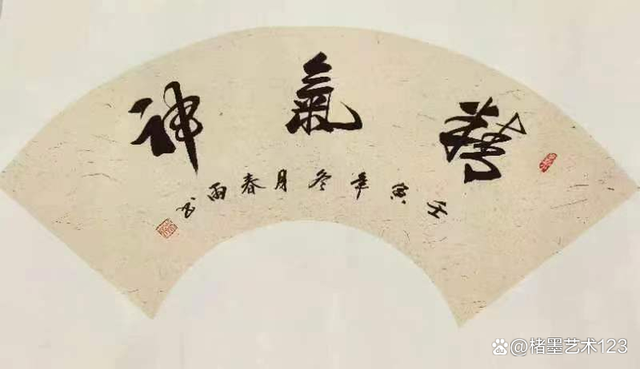 精氣神
壬寅年冬月春雨书
@楮墨艺术123